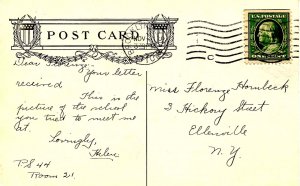 POST CARD
NOV
U.S. POSTAGE
Dear
Your letter
received
This is the
picture of the school
you used to meet me
at.
Lovingly,
Helen
P.S 44
Room 21.
Miss Florenz Hornbeck
2 Hickory Street
Ellenville
N.Y.